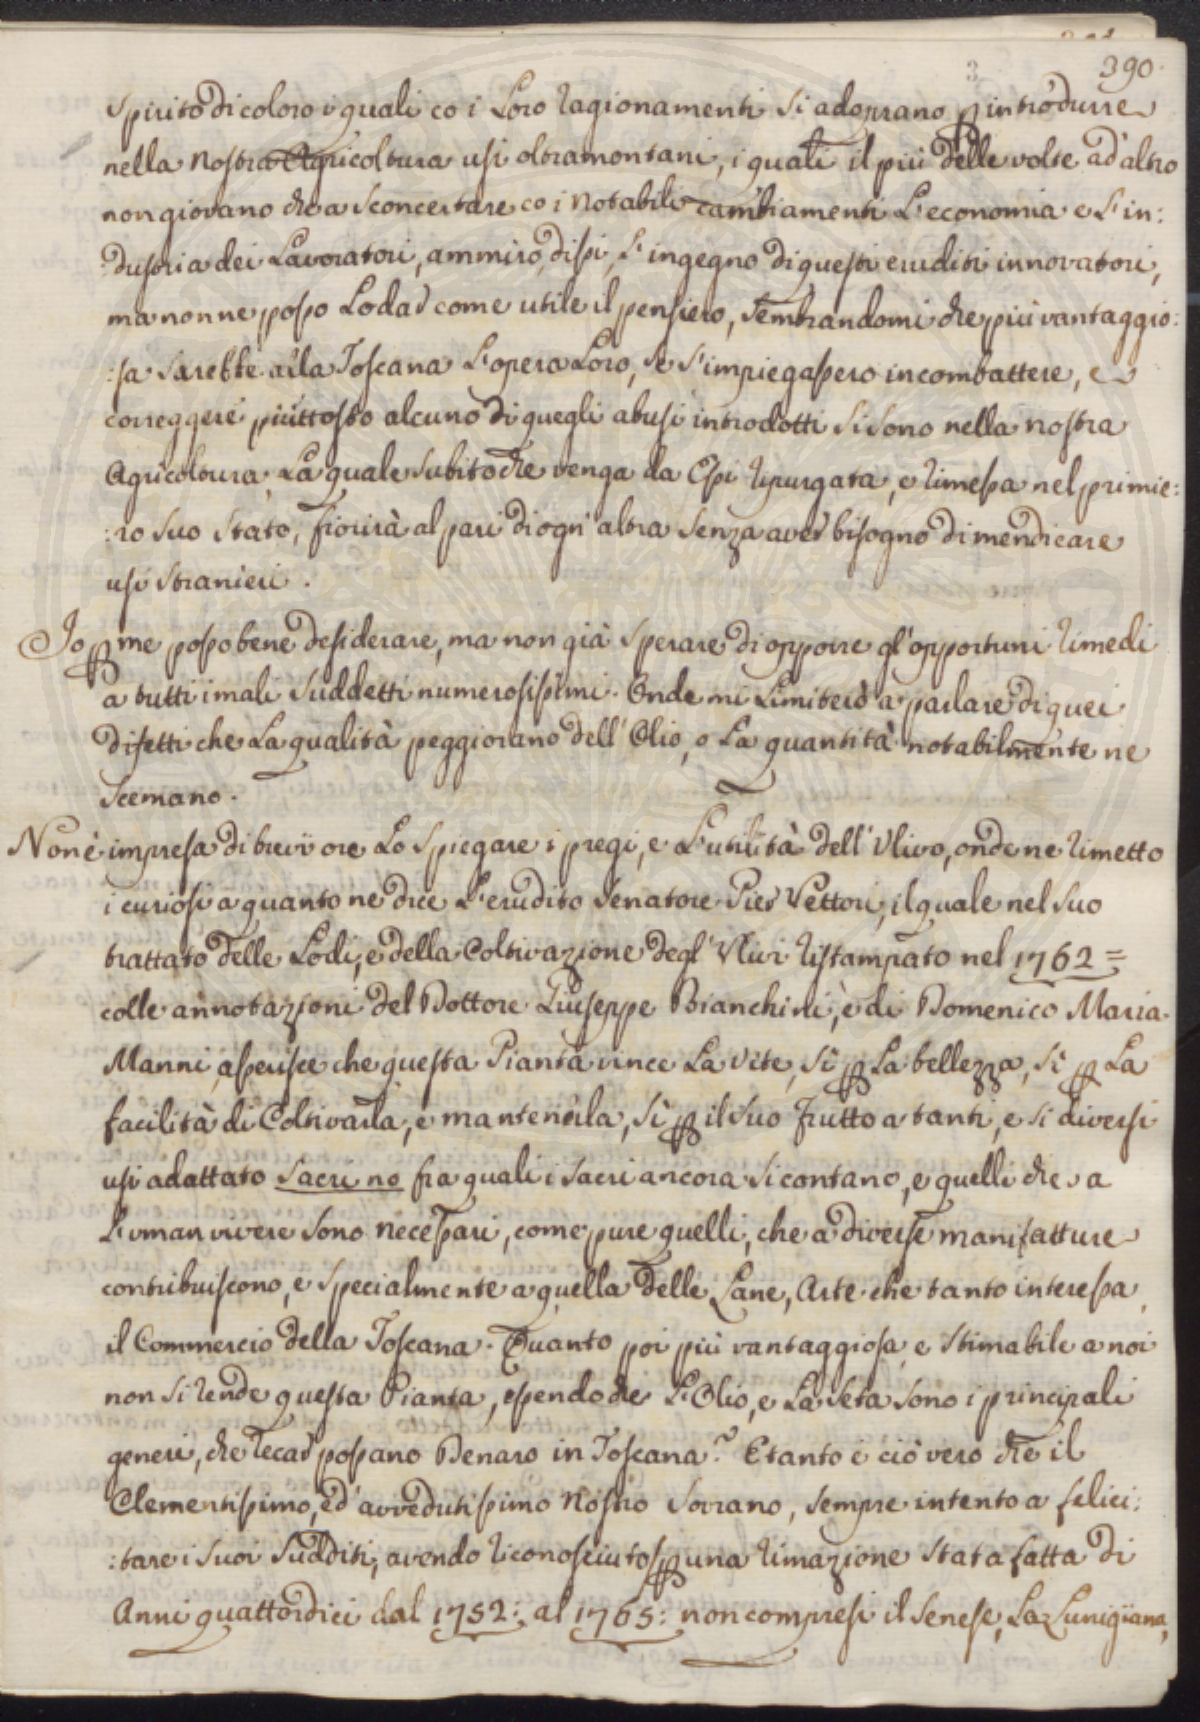 390.
3
spirito di coloro i quali co i Loro ragionamenti si adoprano p introdurre
nella nostra Agricoltura usi oltramontani, i quali il più delle volte ad altro
non giovano che a sconcertare co i notabili cambiamenti L'economia e L'in:
:dustria dei Lavoratori, ammiro, dissi, L'ingegno di questi eruditi innovatori,
ma non ne posso Lodar come utile il pensiero, sembrandomi che più vantaggio:
:sa sarebbe alla Toscana L'opera Loro, se s'impiegassero in combattere, e
correggere piuttosto alcuno di quegli abusi introdotti si sono nella nostra
Agricoltura. La quale subito che venga da Essi ripurgata, e rimessa nel primie:
:ro suo stato, fiorirà al pari di ogn'altra senza aver bisogno di mendicare
usi stranieri.
Io p me posso bene desiderare, ma non già sperare di opporre gl'opportuni rimedi
a tutti i mali suddetti numerosissimi. Onde mi Limiterò a parlare di quei
difetti che La qualità peggiorano dell'Olio, o La quantità notabilmente ne
scemano.
Non è impresa di brevi ore Lo spiegare i pregi, e L'utilità dell'Ulivo, onde ne rimetto
i curiosi a quanto ne dice L'erudito Senatore Pier Vettori, il quale nel suo
trattato delle Lodi, e della Coltivazione degl'Ulivi ristampato nel 1762 =
colle annotazioni del Dottore Giuseppe Bianchini, e di Domenico Maria
Manni, asserisce che questa Pianta vince La vite, sì p La bellezza, sì p La
facilità di Coltivarla, e mantenerla, sì p il suo frutto a tanti, e sì diversi
usi adattato sacri no fra quali i sacri ancora si contano, e quelli che a
L'uman vivere sono necessari, come pure quelli, che a diverse manifatture
contribuiscono, e specialmente a quella delle Lane, Arte che tanto interessa
il Commercio della Toscana. Quanto poi più vantaggiosa, e stimabile a noi
non si rende questa Pianta, essendo che L'Olio, e La seta sono i principali
generi, che recar possano Denaro in Toscana? E tanto è ciò vero che il
Clementissimo, ed avvedutissimo nostro Sovrano, sempre intento a felici:
:tare i suoi sudditi, avendo riconosciuto p una rimazione stata fatta di
Anni quattordici dal 1752: al 1765: non compresi il Senese, La Lunigiana,